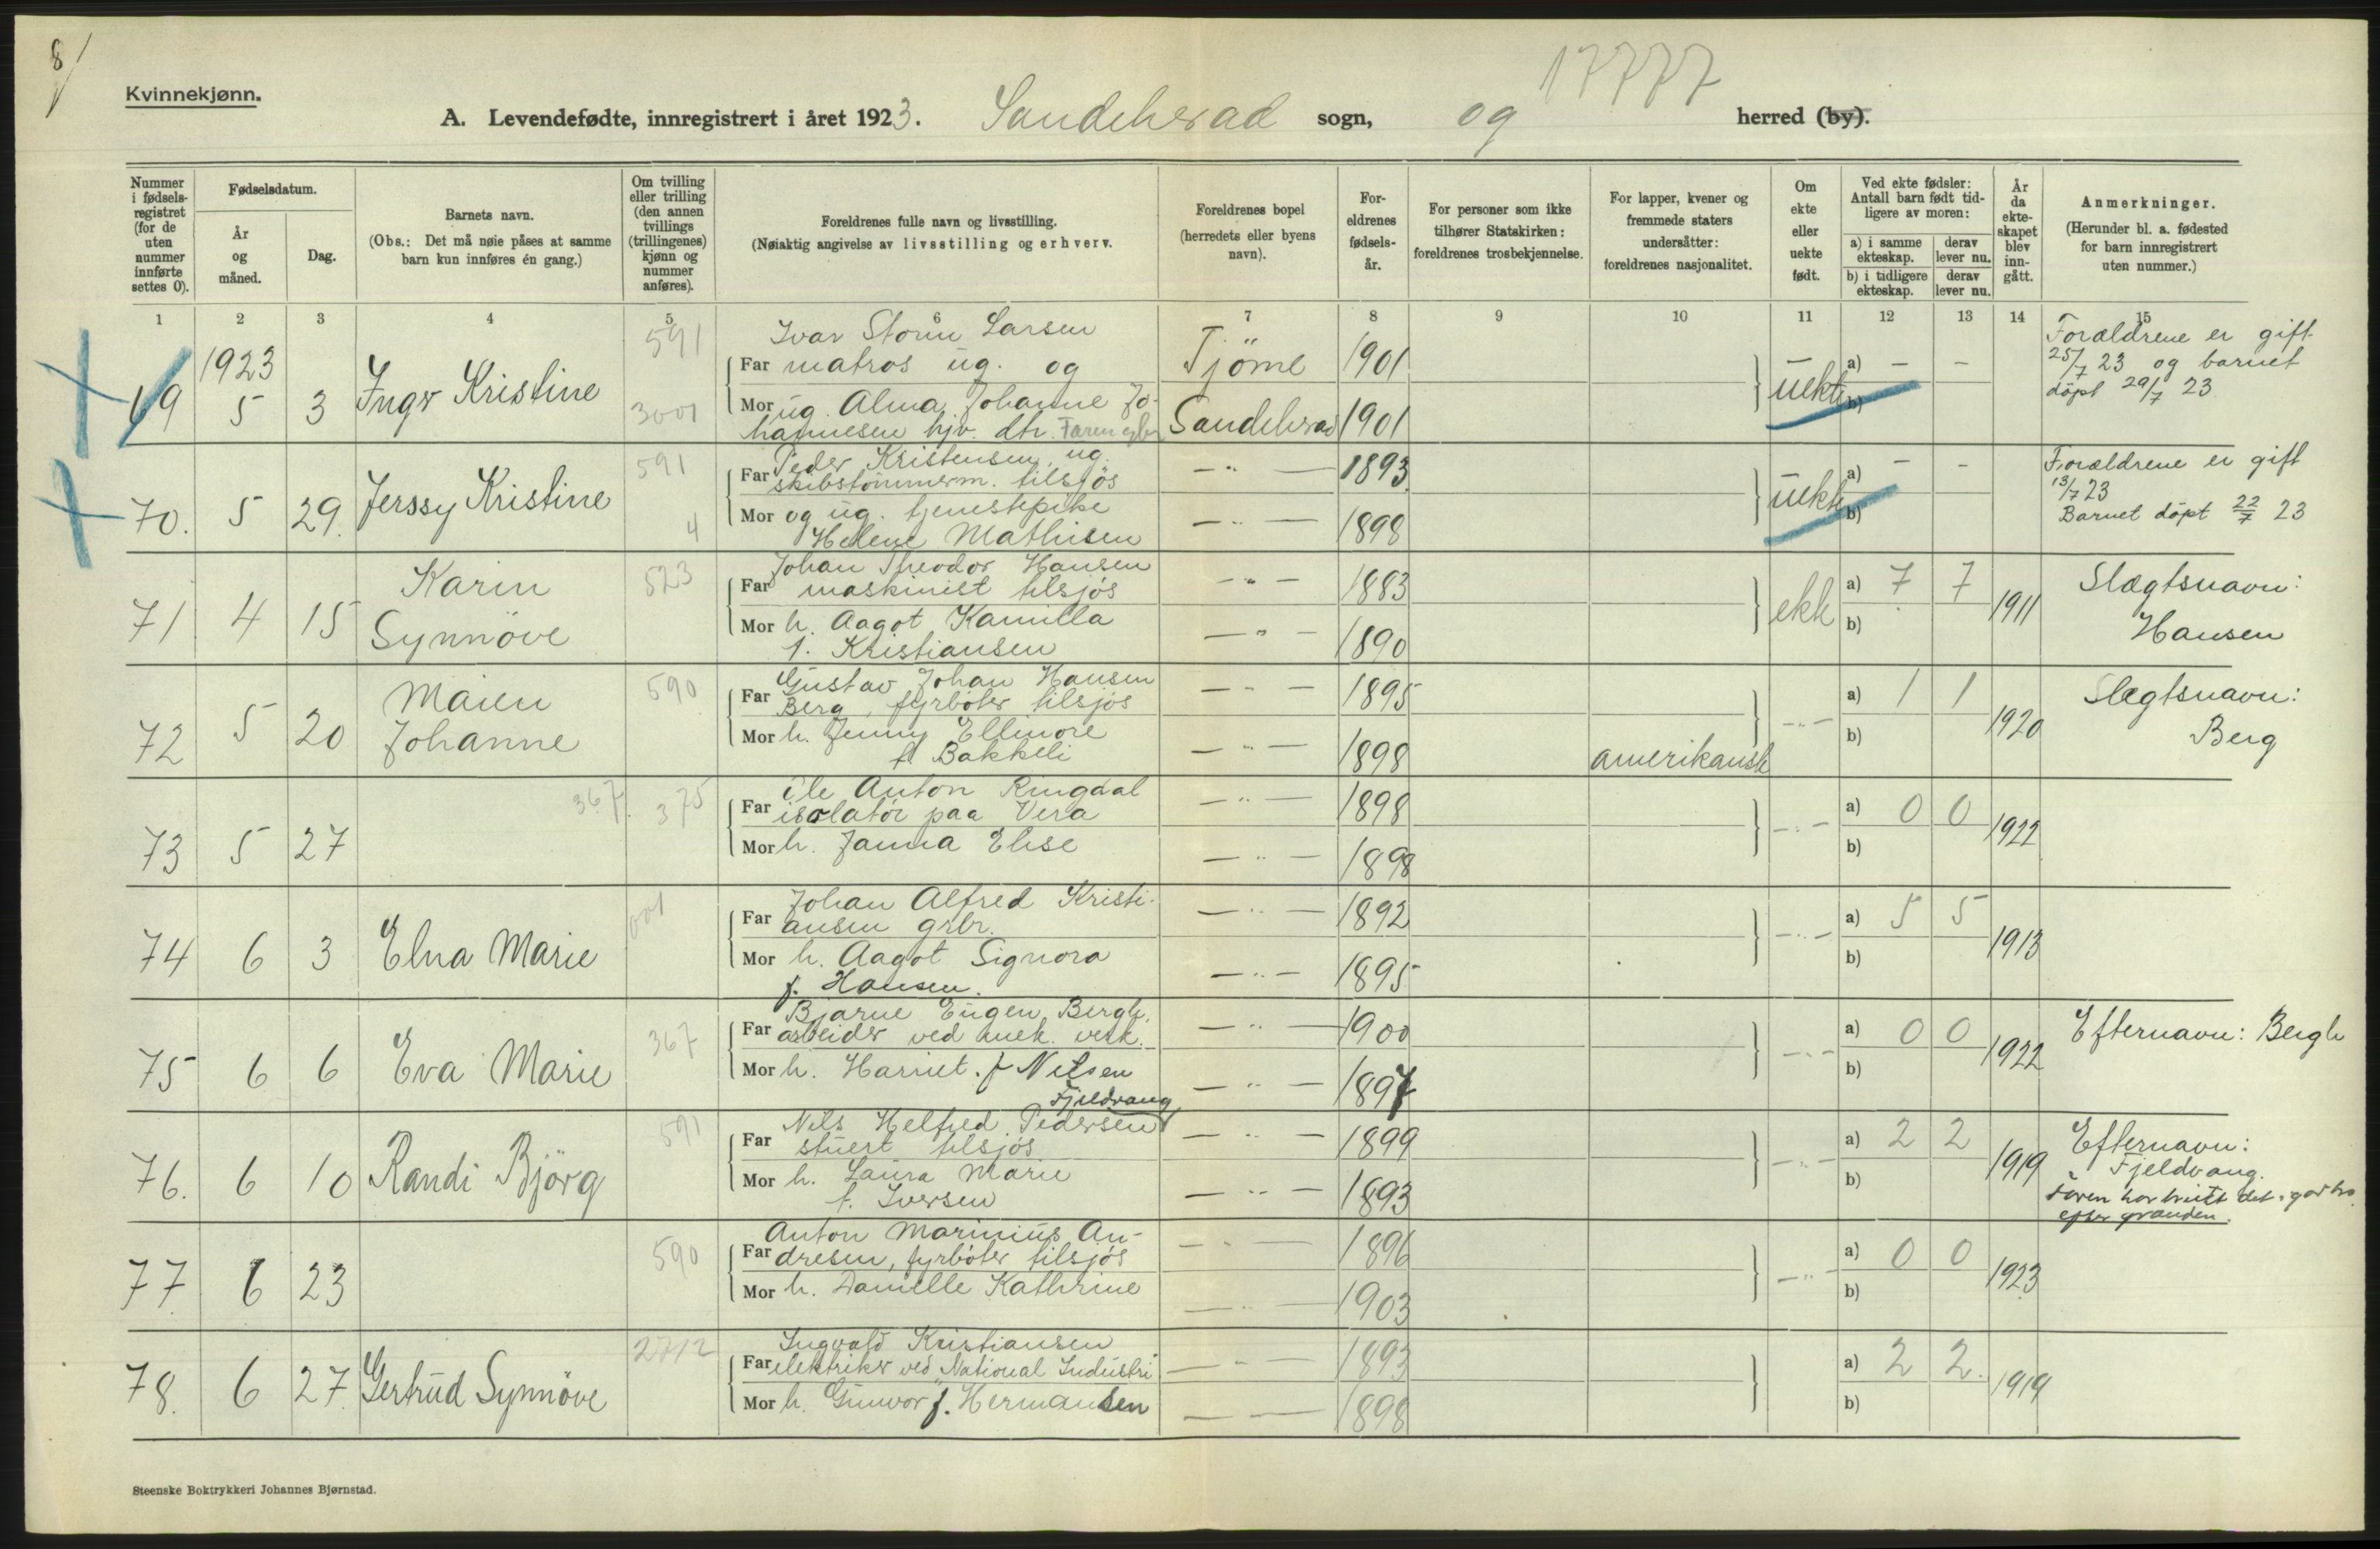 8
Kvinnekjønn.
17777
A. Levendefødte, innregistrert i året 1923. Sandeherad sogn, og herred (by).
Nummer i fødsels-registret (for de uten nummer innførte settes 0).
Fødselsdatum.
År og måned.
Dag.
Barnets navn.
(Obs.: Det må nøie påses at samme barn kun innføres én gang.)
Om tvilling eller trilling (den annen tvillings (trillingenes) kjønn og nummer anføres).
Foreldrenes fulle navn og livsstilling.
(Nøiaktig angivelse av livsstilling og erhverv.
Foreldrenes bopel (herredets eller byens navn).
For-eldrenes fødsels-år.
For personer som ikke tilhører Statskirken: foreldrenes trosbekjennelse.
For lapper, kvener og fremmede staters undersåtter: foreldrenes nasjonalitet.
Om ekte eller uekte født.
Ved ekte fødsler: Antall barn født tid-ligere av moren:
a) i samme ekteskap. derav lever nu.
b) i tidligere ekteskap. derav lever nu.
År da ekte-skapet blev inn-gått.
Anmerkninger.
(Herunder bl. a. fødested for barn innregistrert uten nummer.)
1 2 3 4 5 6 7 8 9 10 11 12 13 14 15
1923
69 5 3 Inger Kristine 591 3001
Ivar Storm Larsen
Far matros ug. og Tjöme 1901
Mor ug. Alma Johanne Jo-
hannesen hjv. dtr. Sandeherad 1901
uekte a) – – b)
Forældrene er gift
25/7 23 og barnet
döpt 29/7 23
70. 5 29. Jerssy Kristine 591 4
Peder Kristensen, ug.
Far skibstömmerm. tilsjös — " — 1893
Mor og ug. tjenestepike
Helene Mathisen — " — 1898
uekte a) – – b)
Forældrene er gift
13/7 23
Barnet döpt 22/7 23
71 4 15 Karin
Synnöve 523
Johan Theodor Hansen
Far maskinist tilsjös — " — 1883
Mor h. Aagot Kamilla
f. Kristiansen — " — 1890
ekte a) 7 7 b) 1911
Slægtsnavn:
Hansen
72 5 20 Maien
Johanne 590
Gustav Johan Hansen
Far Berg, fyrböter tilsjös — " — 1895
Mor h. Jenny Ellinore
f. Bakkeli — " — 1898 amerikansk
— " — a) 1 1 b) 1920
Slegtsnavn:
Berg
73 5 27 367. 375
Ole Anton Ringdal
Far isolatör paa Vera — " — 1898
Mor h. Janna Elise — " — 1898
— " — a) 0 0 b) 1922
74 6 3 Elna Marie 001
Johan Alfred Kristi-
Far ansen grbr. — " — 1892
Mor h. Aagot Signora
f. Hansen. — " — 1895
— " — a) 5 5 b) 1913
75 6 6 Eva Marie 367
Bjarne Eugen Bergh.
Far arbeider ved mek. verk. — " — 1900
Mor h. Harriet. f Nilsen — " — 1897
— " — a) 0 0 b) 1922
Efternavn: Bergh
76. 6 10 Randi Björg 591
Fjeldvang
Nils Helfred Pedersen
Far stuert tilsjös — " — 1899
Mor h. Laura Marie
f. Iversen — " — 1893
— " — a) 2 2 b) 1919
Efternavn:
Fjeldvang.
77. 6 23 590
Anton Marinius An-
Far dresen, fyrböter tilsjös — " — 1896
Mor h. Danielle Kathrine — " — 1903
— " — a) 0 0 b) 1923
78. 6 27. Gertrud Synnöve 2712
Ingvald Kristiansen
Far elektriker ved "National Industri" — " — 1893
Mor h. Gunvor f. Hermansen — — 1898
a) 2 2. b) 1919
Steenske Boktrykkeri Johannes Bjørnstad.